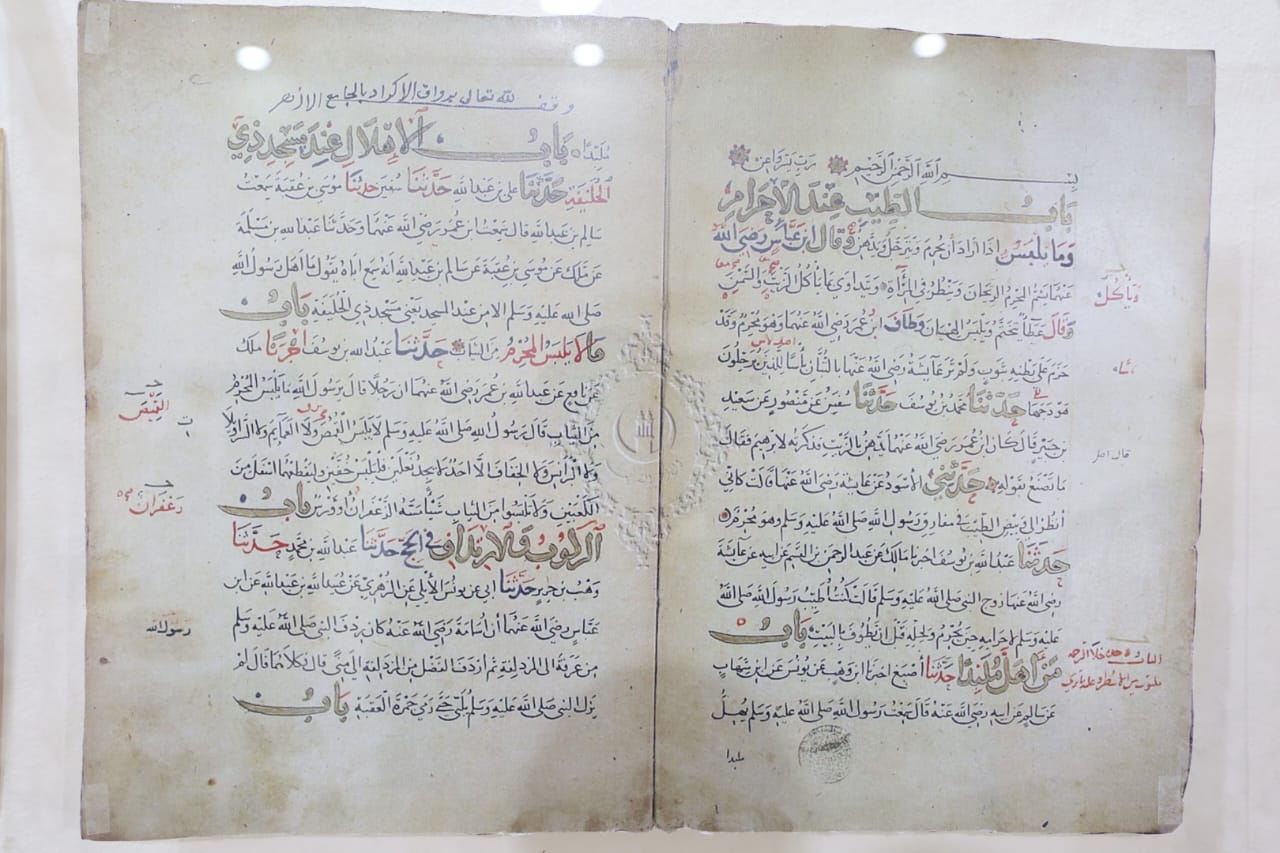 بسم الله الرحمن الرحيم رب يسر واعن
باب الطيب عند الاحرام
وما يلبس اذا اراد ان يحرم ويترجل ويدهن وقال ابن عباس رضي الله
عنهما يشم المحرم الريحان وينظر في المرآة ويتداوى بما ياكل الزيت والسمن
وقال عطاء يتختم ويلبس الهميان وطاف ابن عمر رضي الله عنهما وهو محرم وقد
حزم على بطنه بثوب ولم تر عايشة رضي الله عنها بالتبان باسا للذين يرحلون
هودجها حدثنا محمد بن يوسف حدثنا سفين عن منصور عن سعيد
بن جبير قال كان ابن عمر رضي الله عنهما يدهن بالزيت فذكرته لابرهيم فقال
ما تصنع بقوله حدثني الاسود عن عايشة رضي الله عنها قالت كاني
انظر الى وبيص الطيب في مفارق رسول الله صلى الله عليه وسلم وهو محرم
حدثنا عبد الله بن يوسف اخبرنا مالك عن عبد الرحمن بن القسم عن ابيه عن عايشة
رضي الله عنها زوج النبي صلى الله عليه وسلم قالت كنت اطيب رسول الله صلى الله
عليه وسلم لاحرامه حين يحرم ولحله قبل ان يطوف بالبيت باب
من اهل ملبدا حدثنا اصبغ اخبرنا ابن وهب عن يونس عن ابن شهاب
عن سالم عن ابيه رضي الله عنه قال سمعت رسول الله صلى الله عليه وسلم يهل
ملبدا
وياكل
قال اصل
وقف لله تعالى برواق الاكراد بالجامع الازهر
ملبدا باب الاهلال عند مسجد ذي
الحليفة حدثنا علي بن عبد الله حدثنا سفين حدثنا موسى بن عقبة سمعت
سالم بن عبد الله قال سمعت ابن عمر رضي الله عنهما وحدثنا عبد الله بن مسلمة
عن ملك عن موسى بن عقبة عن سالم بن عبد الله انه سمع اباه يقول ما اهل رسول الله
صلى الله عليه وسلم الا من عند المسجد يعني مسجد ذي الحليفة باب
ما لا يلبس المحرم من الثياب حدثنا عبد الله بن يوسف اخبرنا ملك
عن نافع عن عبد الله بن عمر رضي الله عنهما ان رجلا قال يرسول الله ما يلبس المحرم
من الثياب قال رسول الله صلى الله عليه وسلم لا يلبس القمص ولا العمايم ولا السراويلا
ولا البرانس ولا الخفاف الا احد لا يجد نعلين فليلبس خفين وليقطعهما اسفل من
الكعبين ولا تلبسوا من الثياب شيأ مسه الزعفران او ورس باب
الركوب والارتداف في الحج حدثنا عبد الله بن محمد حدثنا
وهب بن جرير حدثنا ابي عن يونس الايلي عن الزهري عن عبيد الله بن عبد الله عن ابن
عباس رضي الله عنهما ان اسامة رضي الله عنه كان ردف النبي صلى الله عليه وسلم
من عرفة الى المزدلفة ثم اردف الفضل من المزدلفة الى منى قال فكلاهما قال لم
يزل النبي صلى الله عليه وسلم يلبي حتى رمى جمرة العقبة باب
القميص
زعفران
رسول الله